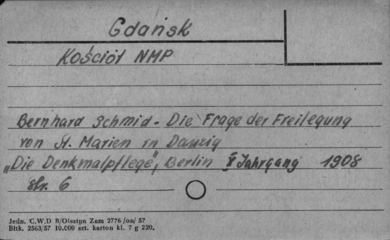 Gdańsk
Kościół NMP
Bernhard Schmid - Die Frage der Freilegung
von St. Marien in Danzig
„Die Denkmalpflege", Berlin X Jahrgang 1908
str. 6
Jedn. C.W.D B/Olsztyn Zam 2776/on/57
Bltk. 2563/57 10.000 szt. karton kl. 7 g 220.